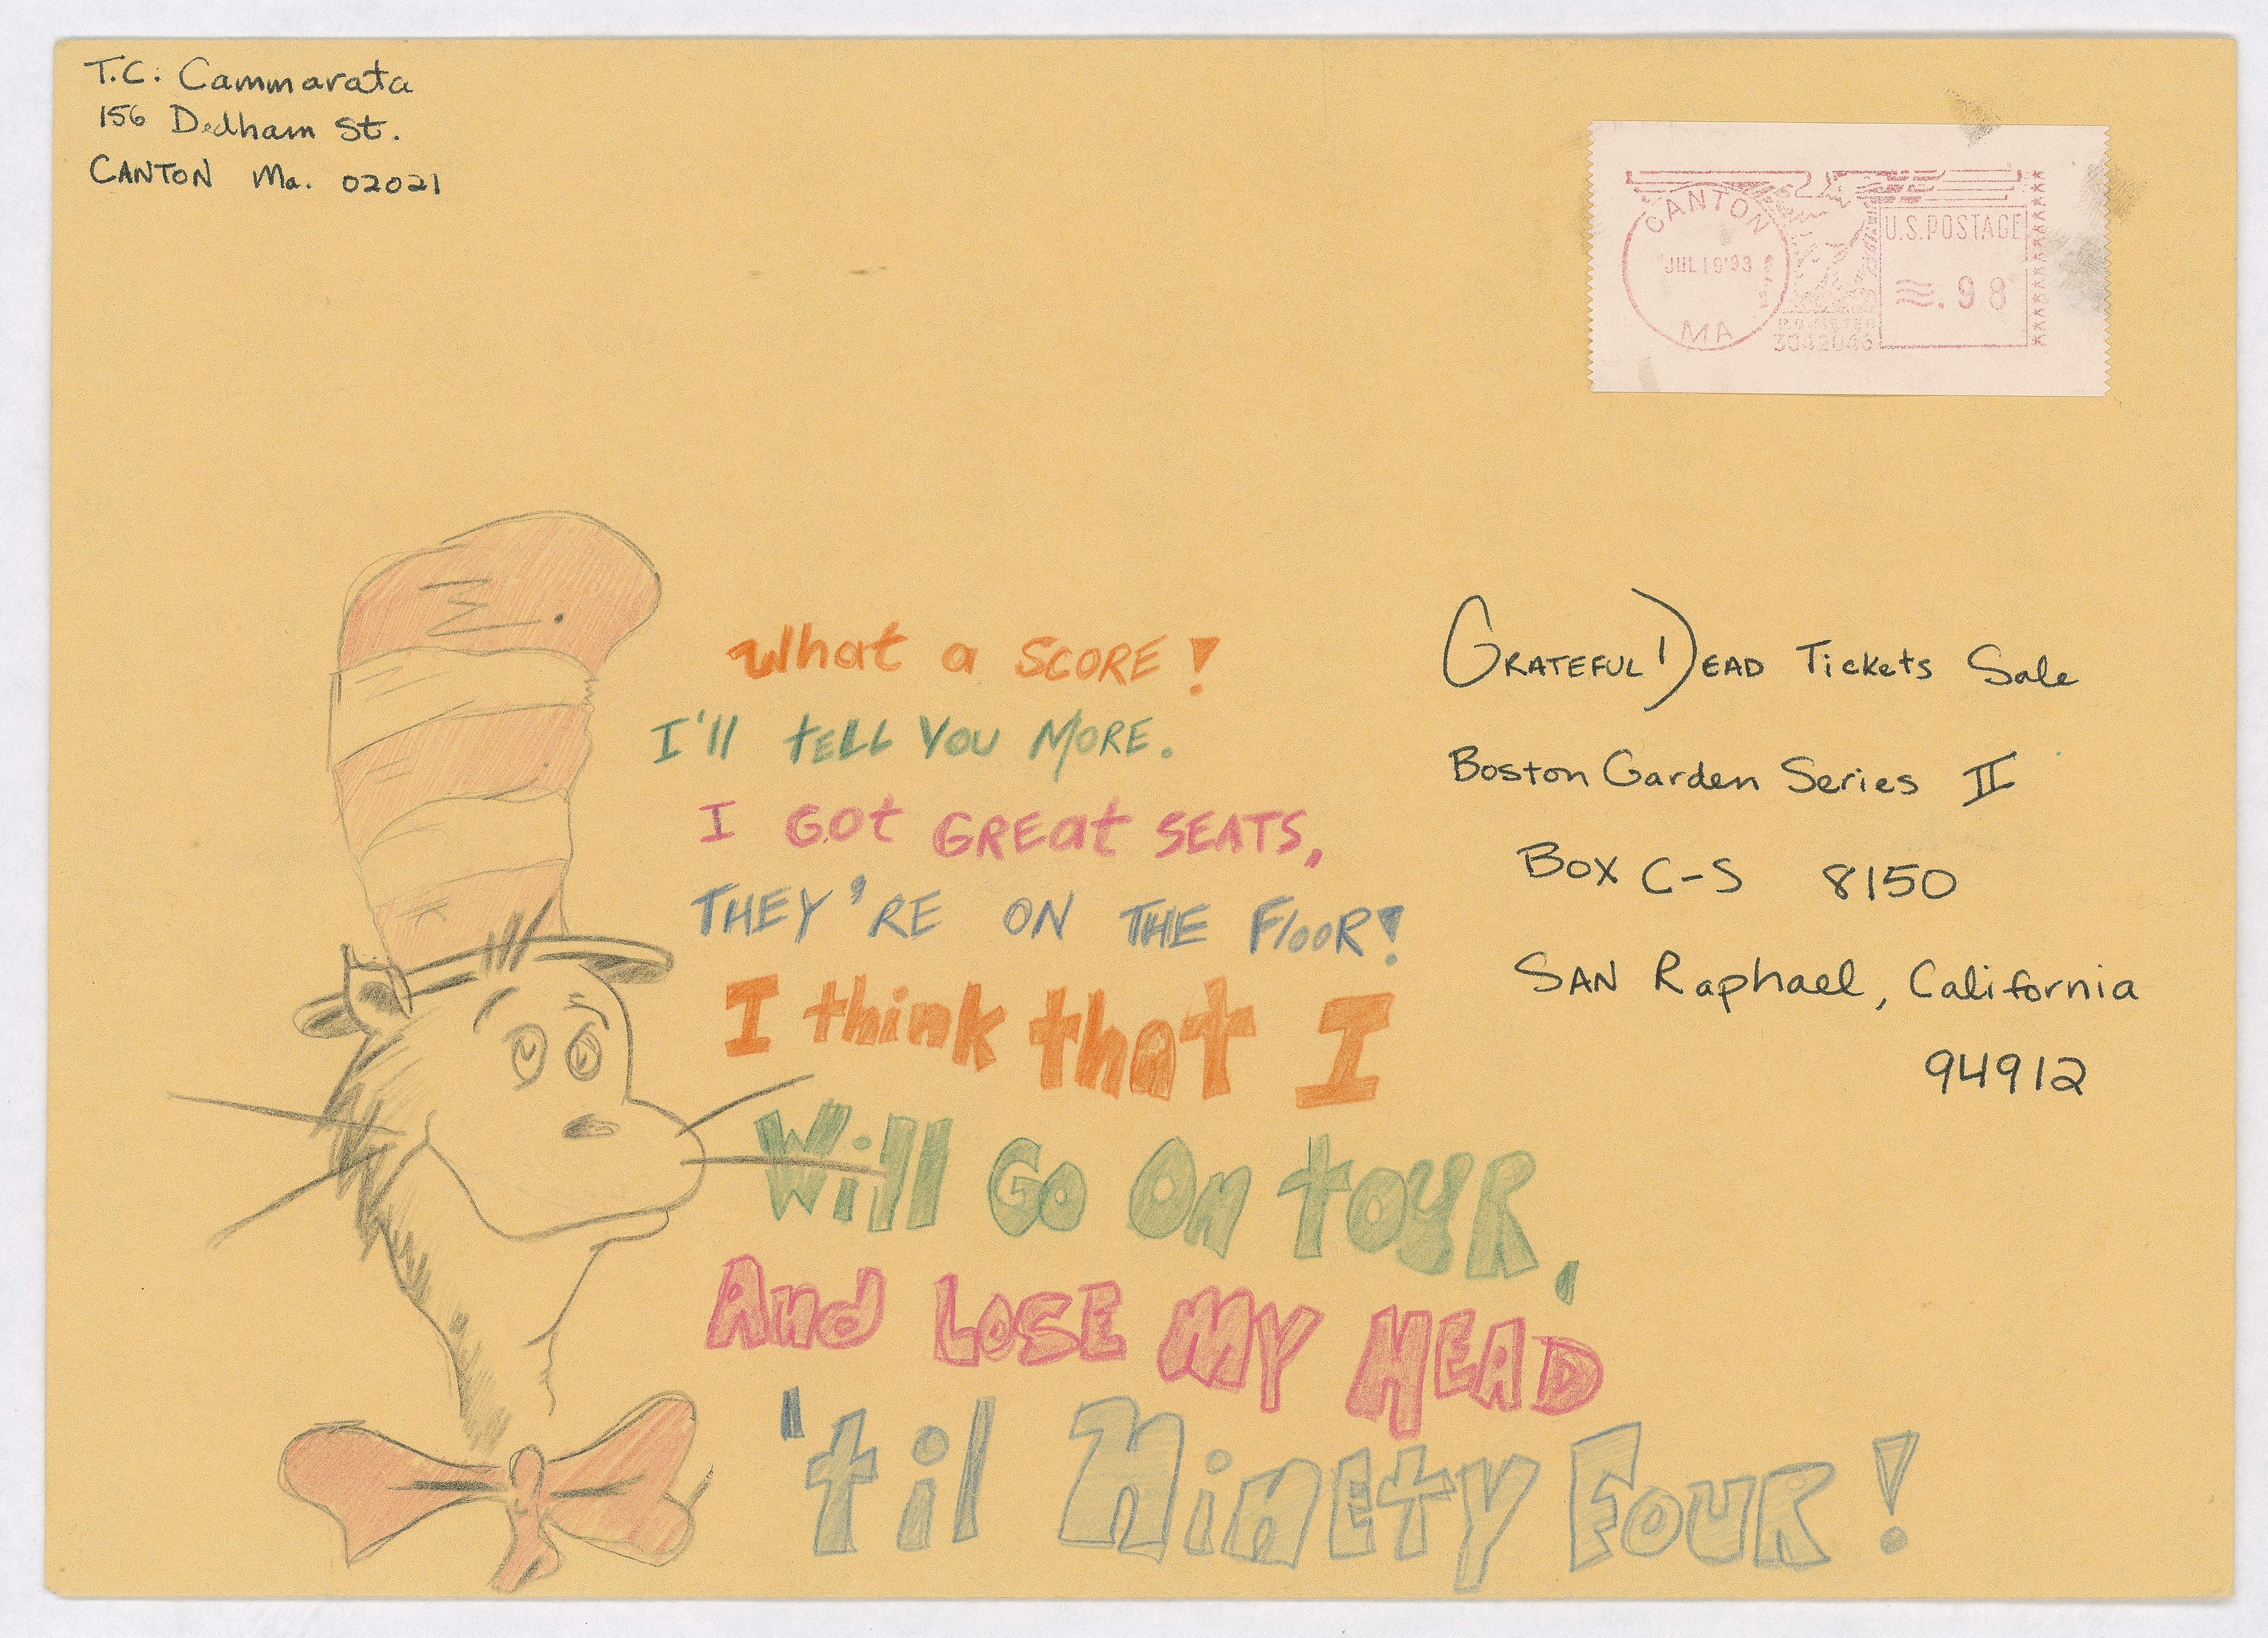 T.C. Cammarata
156 Dedham St.
CANTON Ma. 02021
CANTON
JUL 19 '93
MA
U.S. POSTAGE
.98
What a SCORE!
I'll tELL YOU MORE.
I GOt GREat SEATS,
THEY'RE ON THE FlooR!
I think that I
Will Go On toUR,
And LOSE MY HEAD
'til NinEty FOUR!
GRATEFUL DEAD Tickets Sale
Boston Garden Series II
BOX C-S 8150
SAN Raphael, California
94912